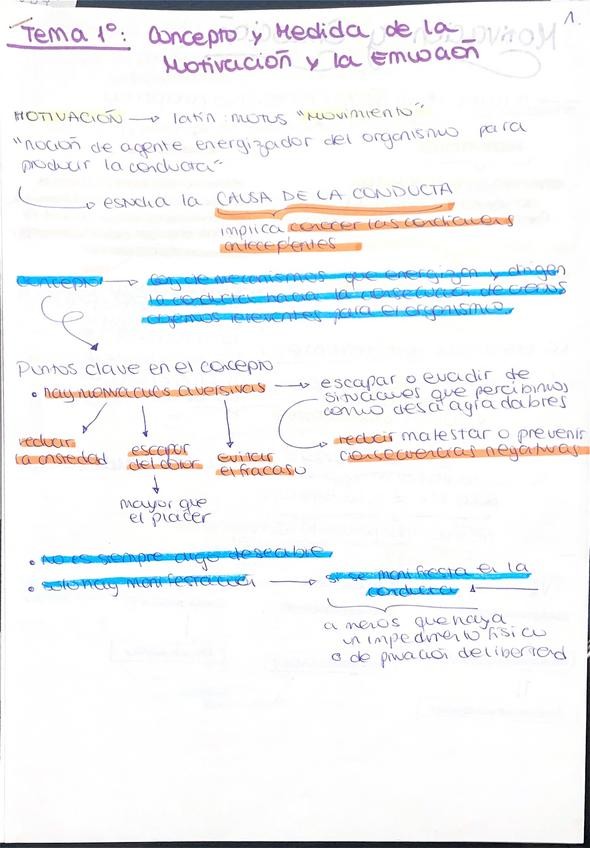 1.
Tema 1º: Concepto y Medida de la
Motivación y la Emoción
MOTIVACIÓN → latín: motus "Movimiento"
"noción de agente energizador del organismo para
producir la conducta"
→ estudia la CAUSA DE LA CONDUCTA
implica conocer las condiciones
antecedentes
concepto → conj de mecanismos que energizan y dirigen
la conducta hacia la consecución de
objetivos relevantes para el organismo.
Puntos clave en el concepto
• hay motivaciones aversivas → escapar o evadir de
situaciones que percibimos
como desagradables
→ reducir malestar o prevenir
consecuencias negativas
reducir
la ansiedad
escapar
del dolor
evitar
el fracaso
mayor que
el placer
• no es siempre algo deseable
• solo hay manifestación → si se manifiesta en la
conducta
a menos que haya
un impedimento físico
o de privación de libertad